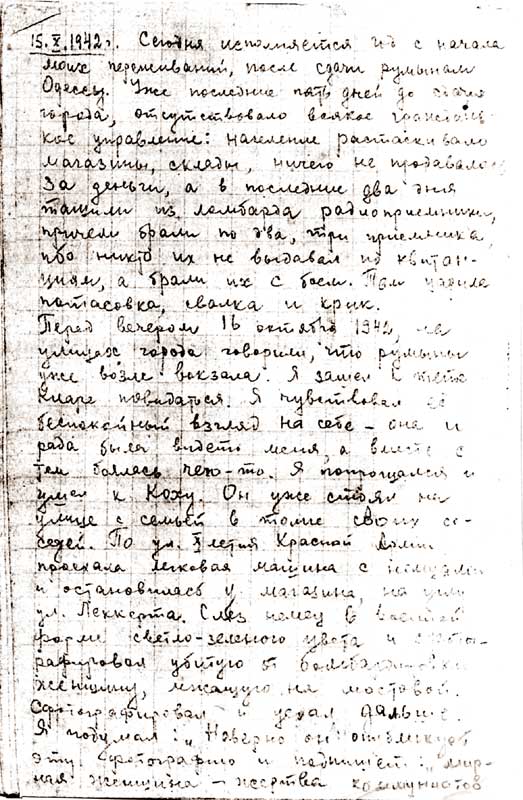 15.X.1942 г. Сегодня исполняется год с начала
моих переживаний, после сдачи румынам
Одессы. Уже последние пять дней до сдачи
города, отсутствовало всякое граждан-
ское управление: население растаскивало
магазины, склады, ничего не продавалось
за деньги, а в последние два дня
тащили из ломбарда радиоприемники,
причем брали по два, три приемника,
ибо никто их не выдавал по квитан-
циям, а брали их с боем. Там царила
потасовка, свалка и крик.
Перед вечером 16 октября 1942, на
улицах города говорили, что румыны
уже возле вокзала. Я зашел к тете
Кларе повидаться. Я чувствовал её
беспокойный взгляд на себе – она и
рада была видеть меня, а вместе с
тем боялась чего-то. Я попрощался и
ушел к Коху. Он уже стоял на
улице с семьей в толпе своих со-
седей. По ул. X летия Красной Армии
проехала легковая машина с немцами
и остановилась у магазина, на углу
ул. Леккерта. Слез немец в военной
форме светло-зеленого цвета и сфотог-
рафировал убитую от бомбардировки
женщину, лежащую на мостовой.
Сфотографировал и уехал дальше.
Я подумал: "Наверно он
эту фотографию и подпишет: "мир-
ная женщина – жертва коммунистов